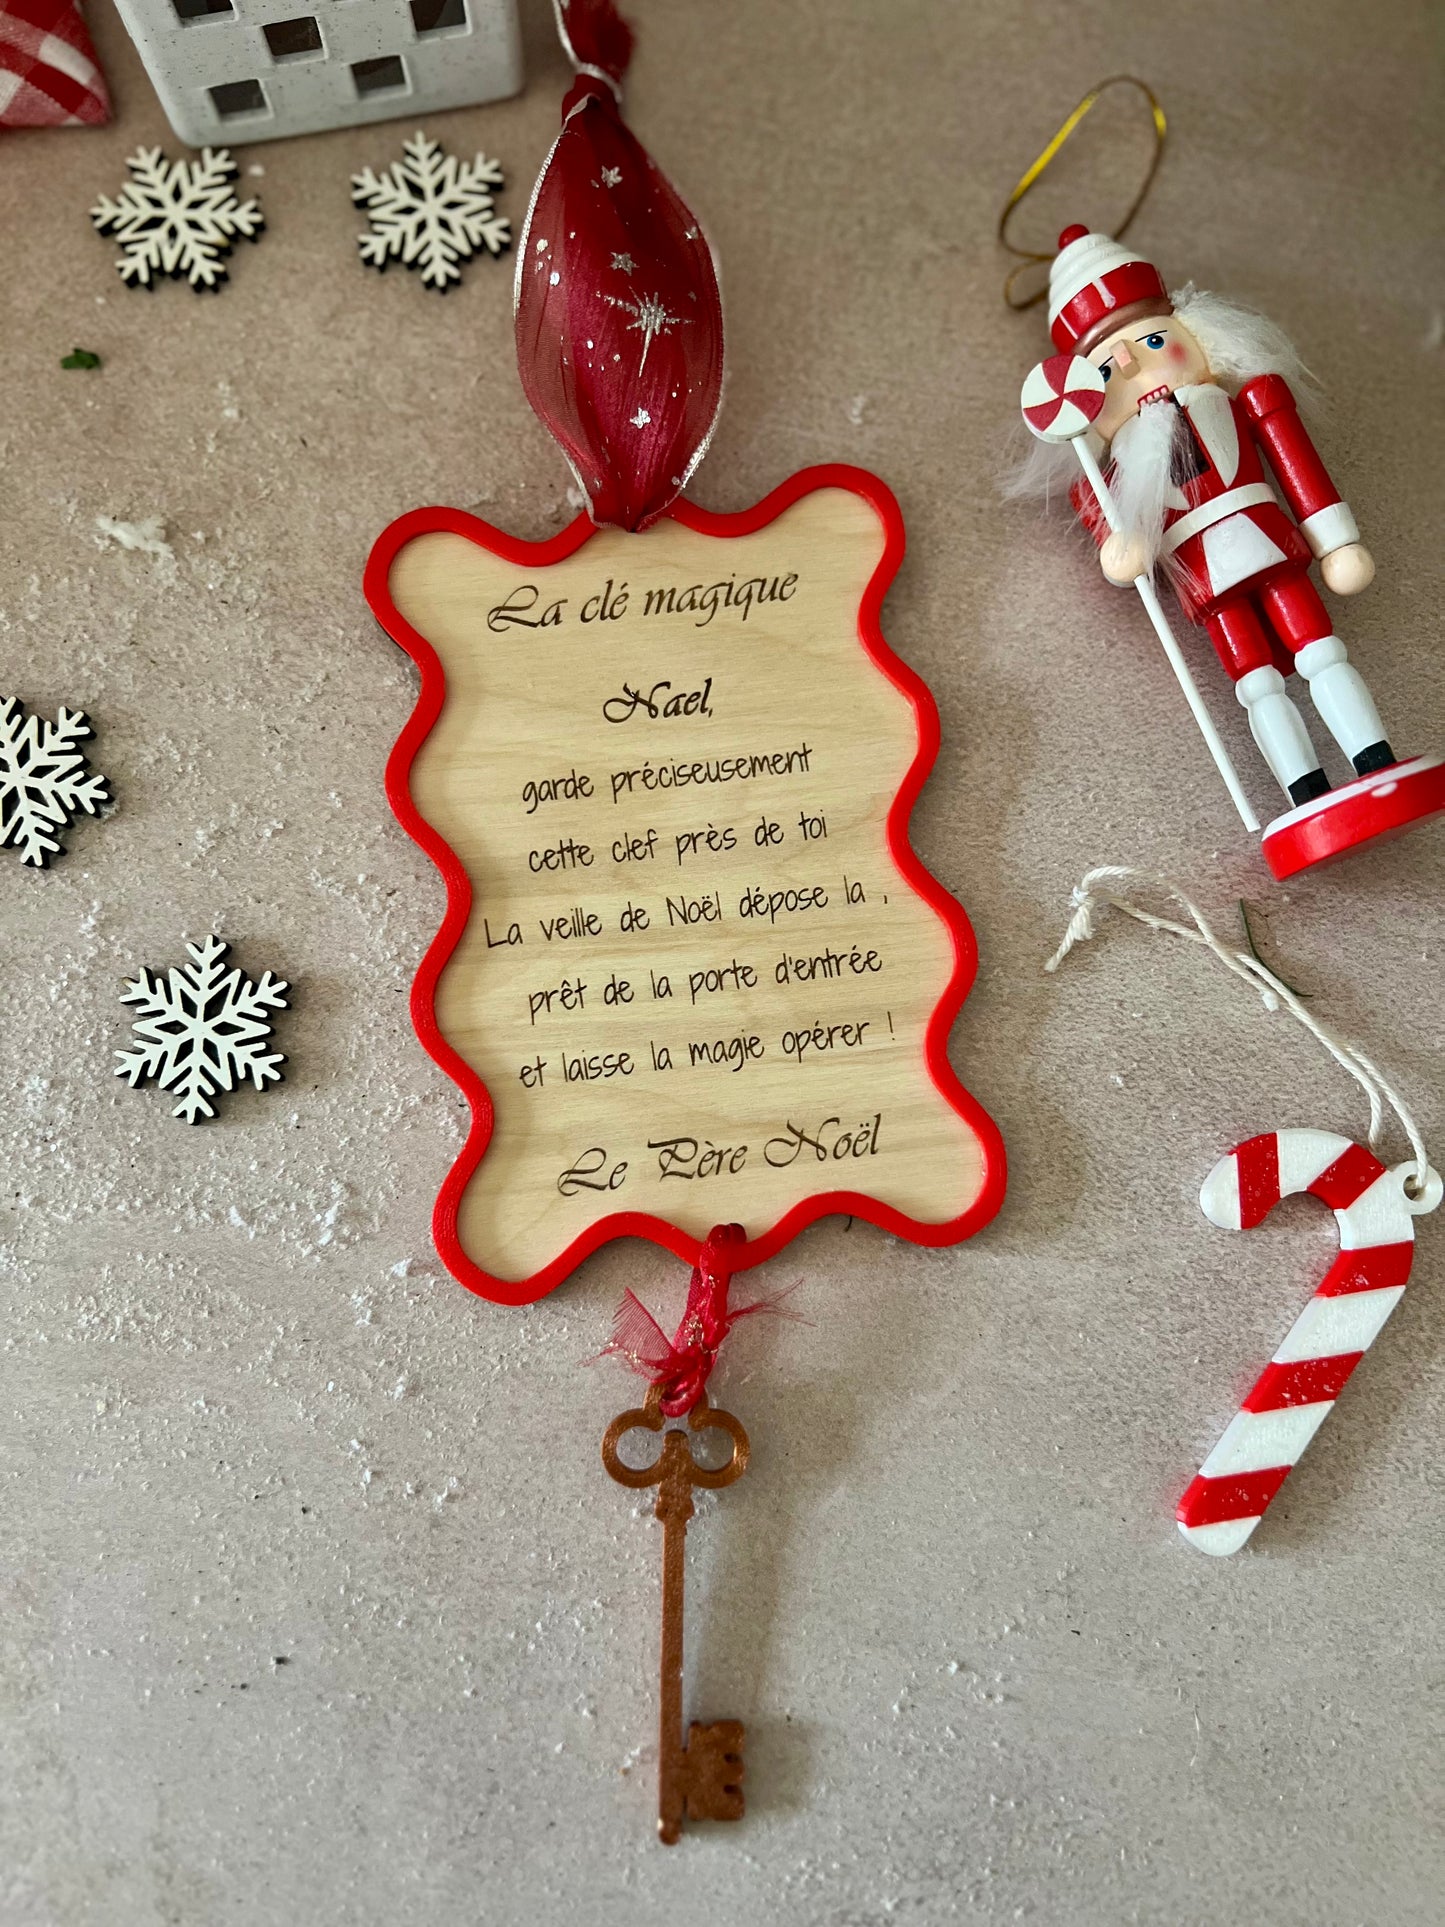 La clé magique
Nael,
garde préciseusement
cette clef près de toi
La veille de Noël dépose la ,
prêt de la porte d'entrée
et laisse la magie opérer !
Le Père Noël